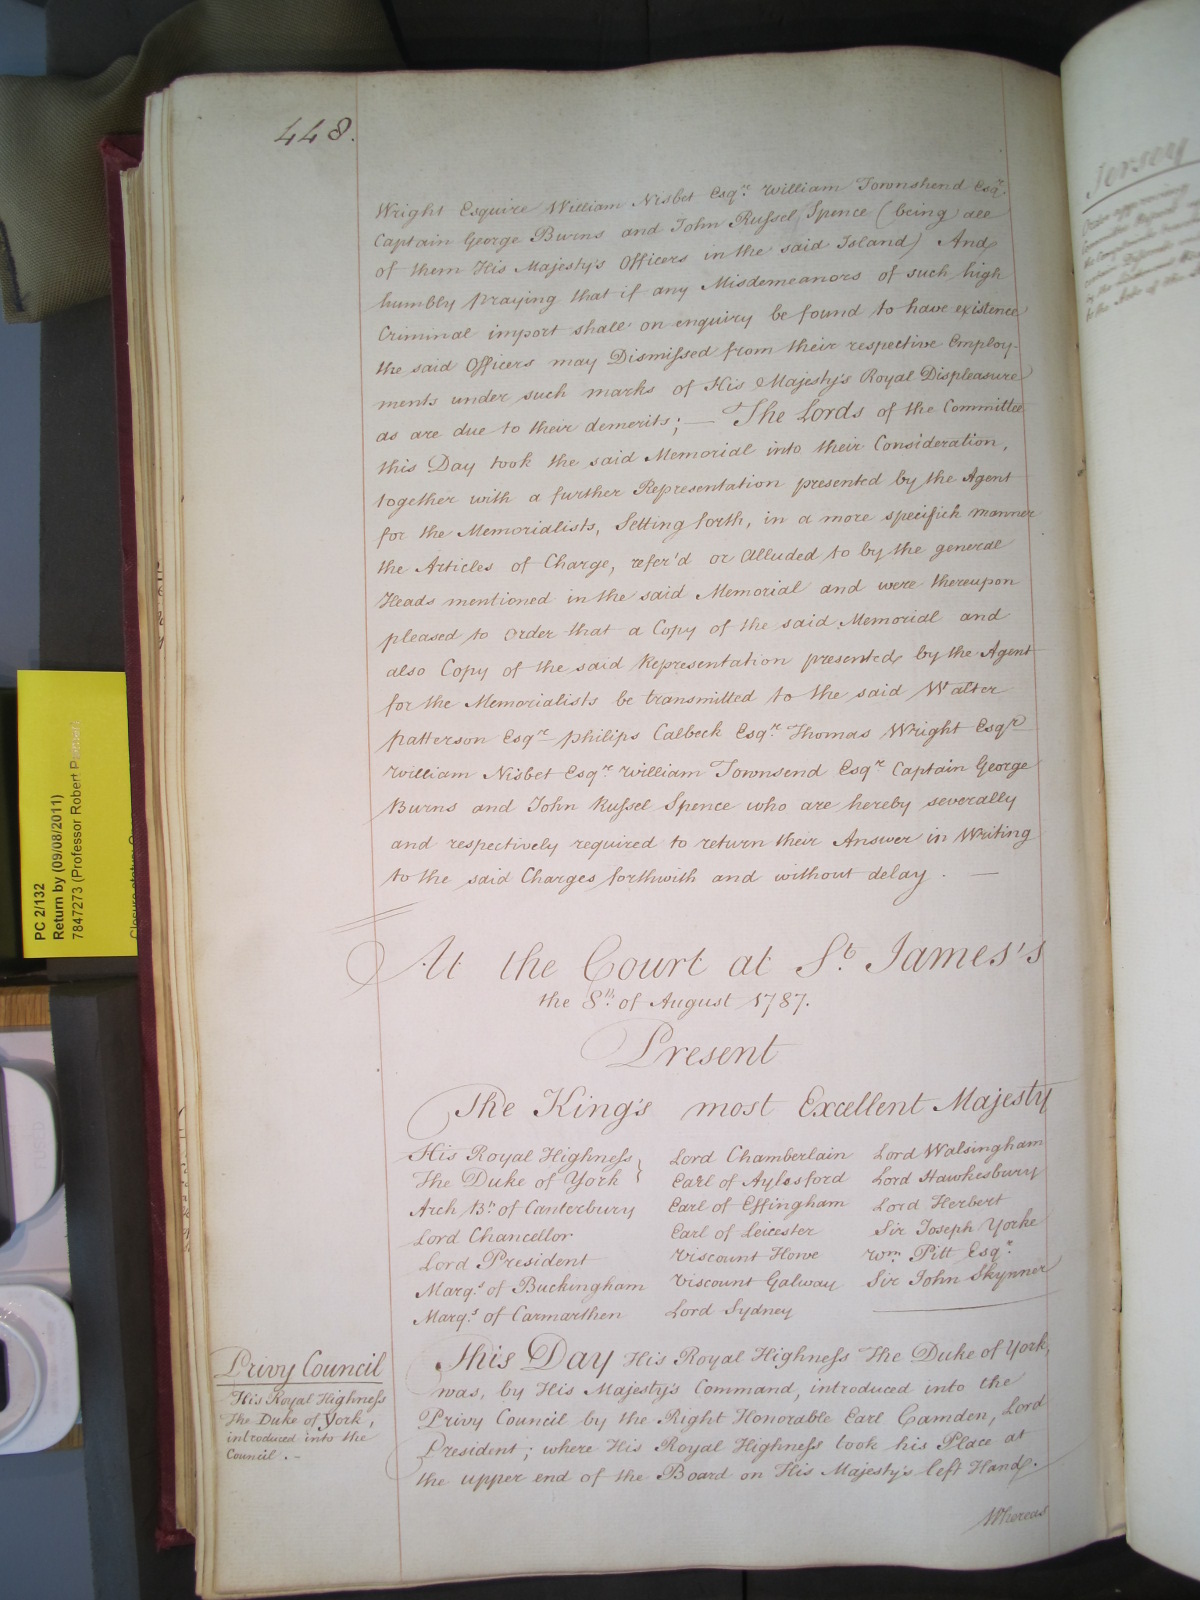 448.
Wright Esquire William Nisbet Esqr. William Townshend Esqr.
Captain George Burns and John Russel Spence (being all
of them His Majesty's Officers in the said Island) And
humbly praying that if any Misdemeanors of such high
Criminal import shall on enquiry be found to have existence
the said Officers may Dismissed from their respective Employ-
ments under such marks of His Majesty's Royal Displeasure
as are due to their demerits; — The Lords of the Committee
this Day took the said Memorial into their Consideration,
together with a further Representation presented by the Agent
for the Memorialists, Setting forth, in a more specifick manner
the Articles of Charge, refer'd or Alluded to by the general
Heads mentioned in the said Memorial and were thereupon
pleased to Order that a Copy of the said Memorial and
also Copy of the said Representation presented by the Agent
for the Memorialists be transmitted to the said Walter
Patterson Esqr. Philips Calbeck Esqr. Thomas Wright Esqr.
William Nisbet Esqr. William Townsend Esqr. Captain George
Burns and John Russel Spence who are hereby severally
and respectively required to return their Answer in Writing
to the said Charges forthwith and without delay. —
At the Court at St. James's
the 8th. of August 1787.
Present
The King's most Excellent Majesty
His Royal Highness
The Duke of York
Arch Bp. of Canterbury
Lord Chancellor
Lord President
Marqs. of Buckingham
Marqs. of Carmarthen
Lord Chamberlain
Earl of Aylesford
Earl of Effingham
Earl of Leicester
Viscount Howe
Viscount Galway
Lord Sydney
Lord Walsingham
Lord Hawkesbury
Lord Herbert
Sir Joseph Yorke
Wm. Pitt Esqr.
Sir John Skynner
Privy Council
His Royal Highness
The Duke of York,
introduced into the
Council. -
This Day His Royal Highness The Duke of York,
was, by His Majesty's Command, introduced into the
Privy Council by the Right Honorable Earl Camden, Lord
President; where His Royal Highness took his Place at
the upper end of the Board on His Majesty's left Hand.
Whereas
PC 2/132
Return by (09/08/2011)
7847273 (Professor Robert
Jersey
Order approving
Committee Report